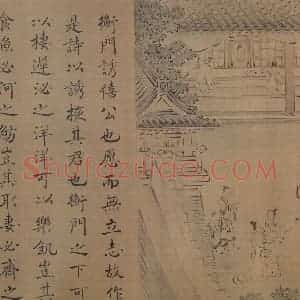 衡門誘僖公也愿而無立志故作
是詩以誘掖其君也衡門之下可
以棲遲泌之洋洋可以樂飢豈其
食魚必河之魴豈其取妻必齊之
Shufazidao.com